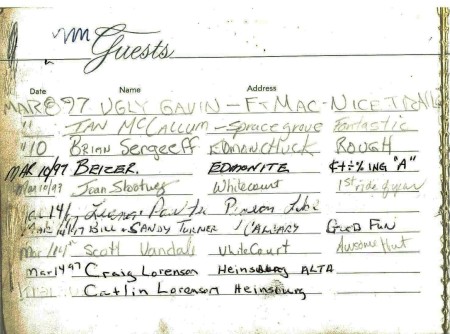 Guests
Date Name Address
MAR 8 97 UGLY GAVIN - FT MAC - NICE TRAIL
" IAN McCALLUM - Sprucegrove Fantastic
"10 BRIAN Sergeeff EDMONCHUCK ROUGH
MAR 10/97 BEIZER. EDMONITE ING "A"
Mar 10/97 Jean Whitecourt 1st ride of year
14/
BILL & SANDY TURNER CALGARY GOOD FUN
Mar/14 Scott Vandale WhiteCourt Awesome Hut
Mar 14 97 Craig Lorenson Heinsburg ALTA
Caitlin Lorenson Heinsburg